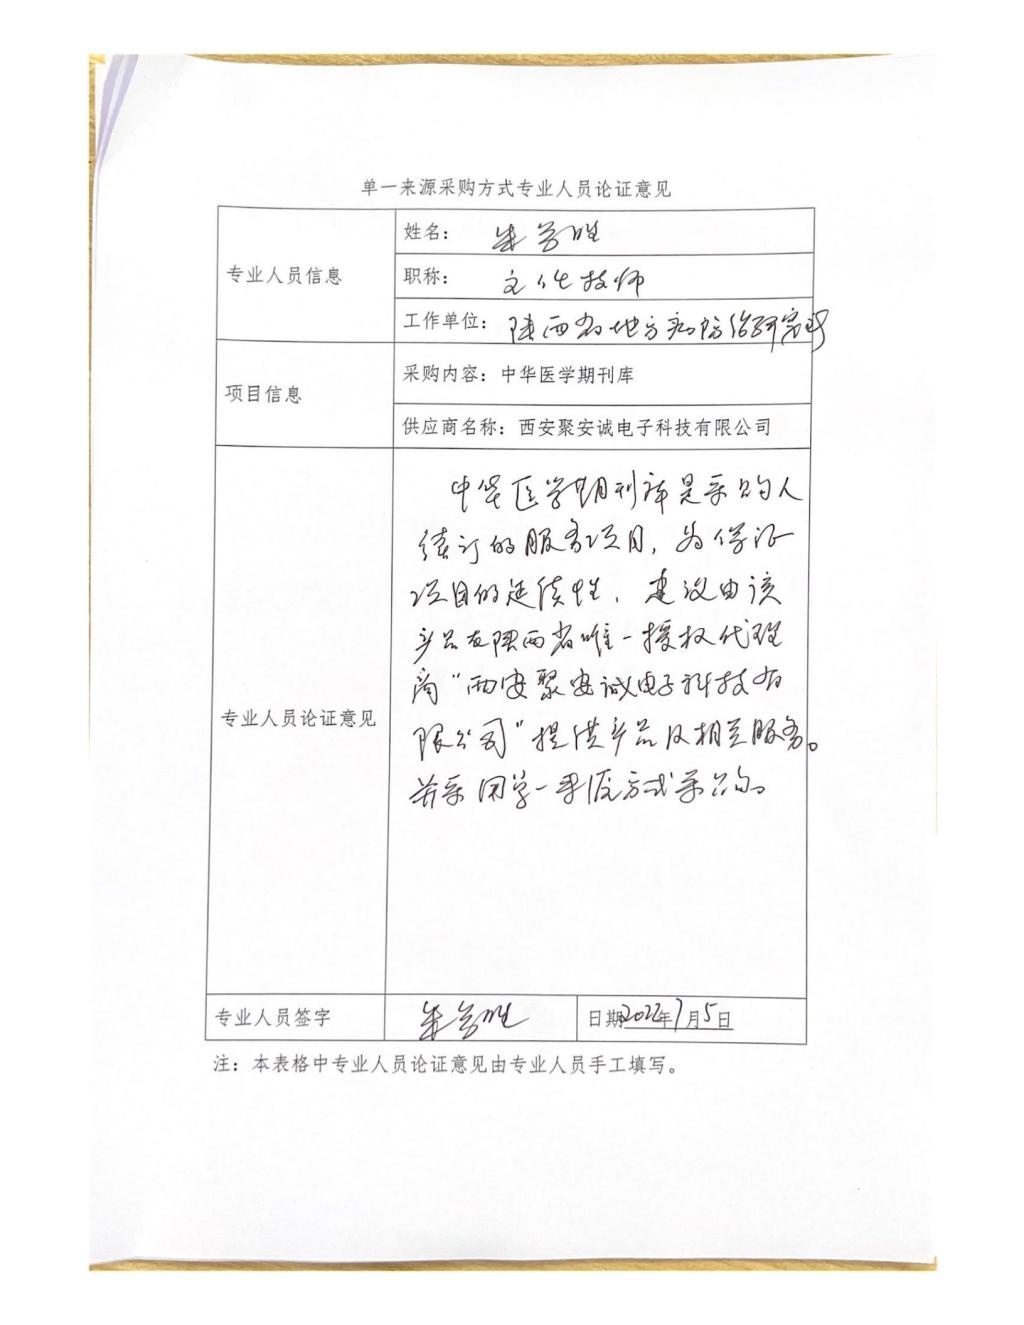 单一来源采购方式专业人员论证意见
专业人员信息
姓名：
职称：
工作单位：陕西省地方病防治研究所
项目信息
采购内容：中华医学期刊库
供应商名称：西安聚安诚电子科技有限公司
专业人员论证意见
中华医学期刊库是采购人
续订的服务项目，为保证
项目的延续性，建议由该
产品在陕西省唯一授权代理
商“西安聚安诚电子科技有
限公司”提供产品及相关服务。
并采用单一来源方式采购。
专业人员签字
日期2022年7月5日
注：本表格中专业人员论证意见由专业人员手工填写。